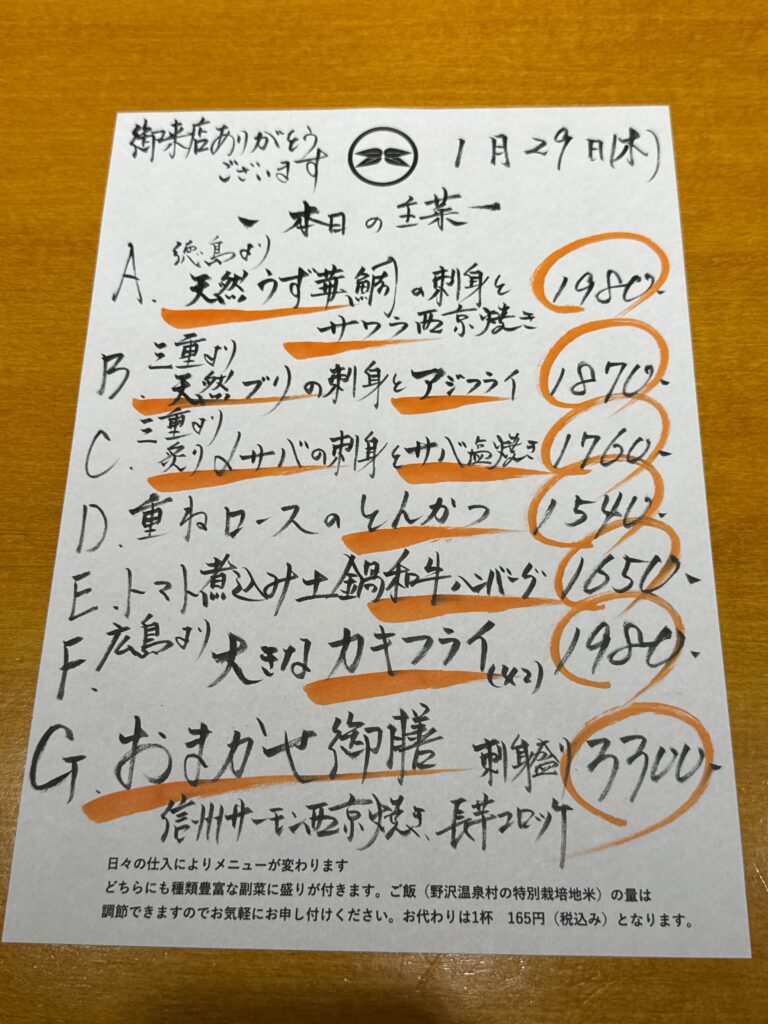 御来店ありがとう
ございます
1月29日(木)
- 本日の主菜 -
徳島より
A. 天然うず華鯛の刺身と 1980-
サワラ西京焼き
三重より
B. 天然ブリの刺身とアジフライ 1870-
三重より
C. 炙り〆サバの刺身とサバ塩焼き 1760-
D. 重ねロースのとんかつ 1540-
E. トマト煮込み土鍋和牛ハンバーグ 1650-
F. 広島より 大きなカキフライ(x2) 1980-
G. おまかせ御膳 刺身盛り 3300-
信州サーモン西京焼き、長芋コロッケ
日々の仕入によりメニューが変わります
どちらにも種類豊富な副菜に盛りが付きます。ご飯(野沢温泉村の特別栽培地米)の量は
調節できますのでお気軽にお申し付けください。お代わりは1杯 165円(税込み)となります。